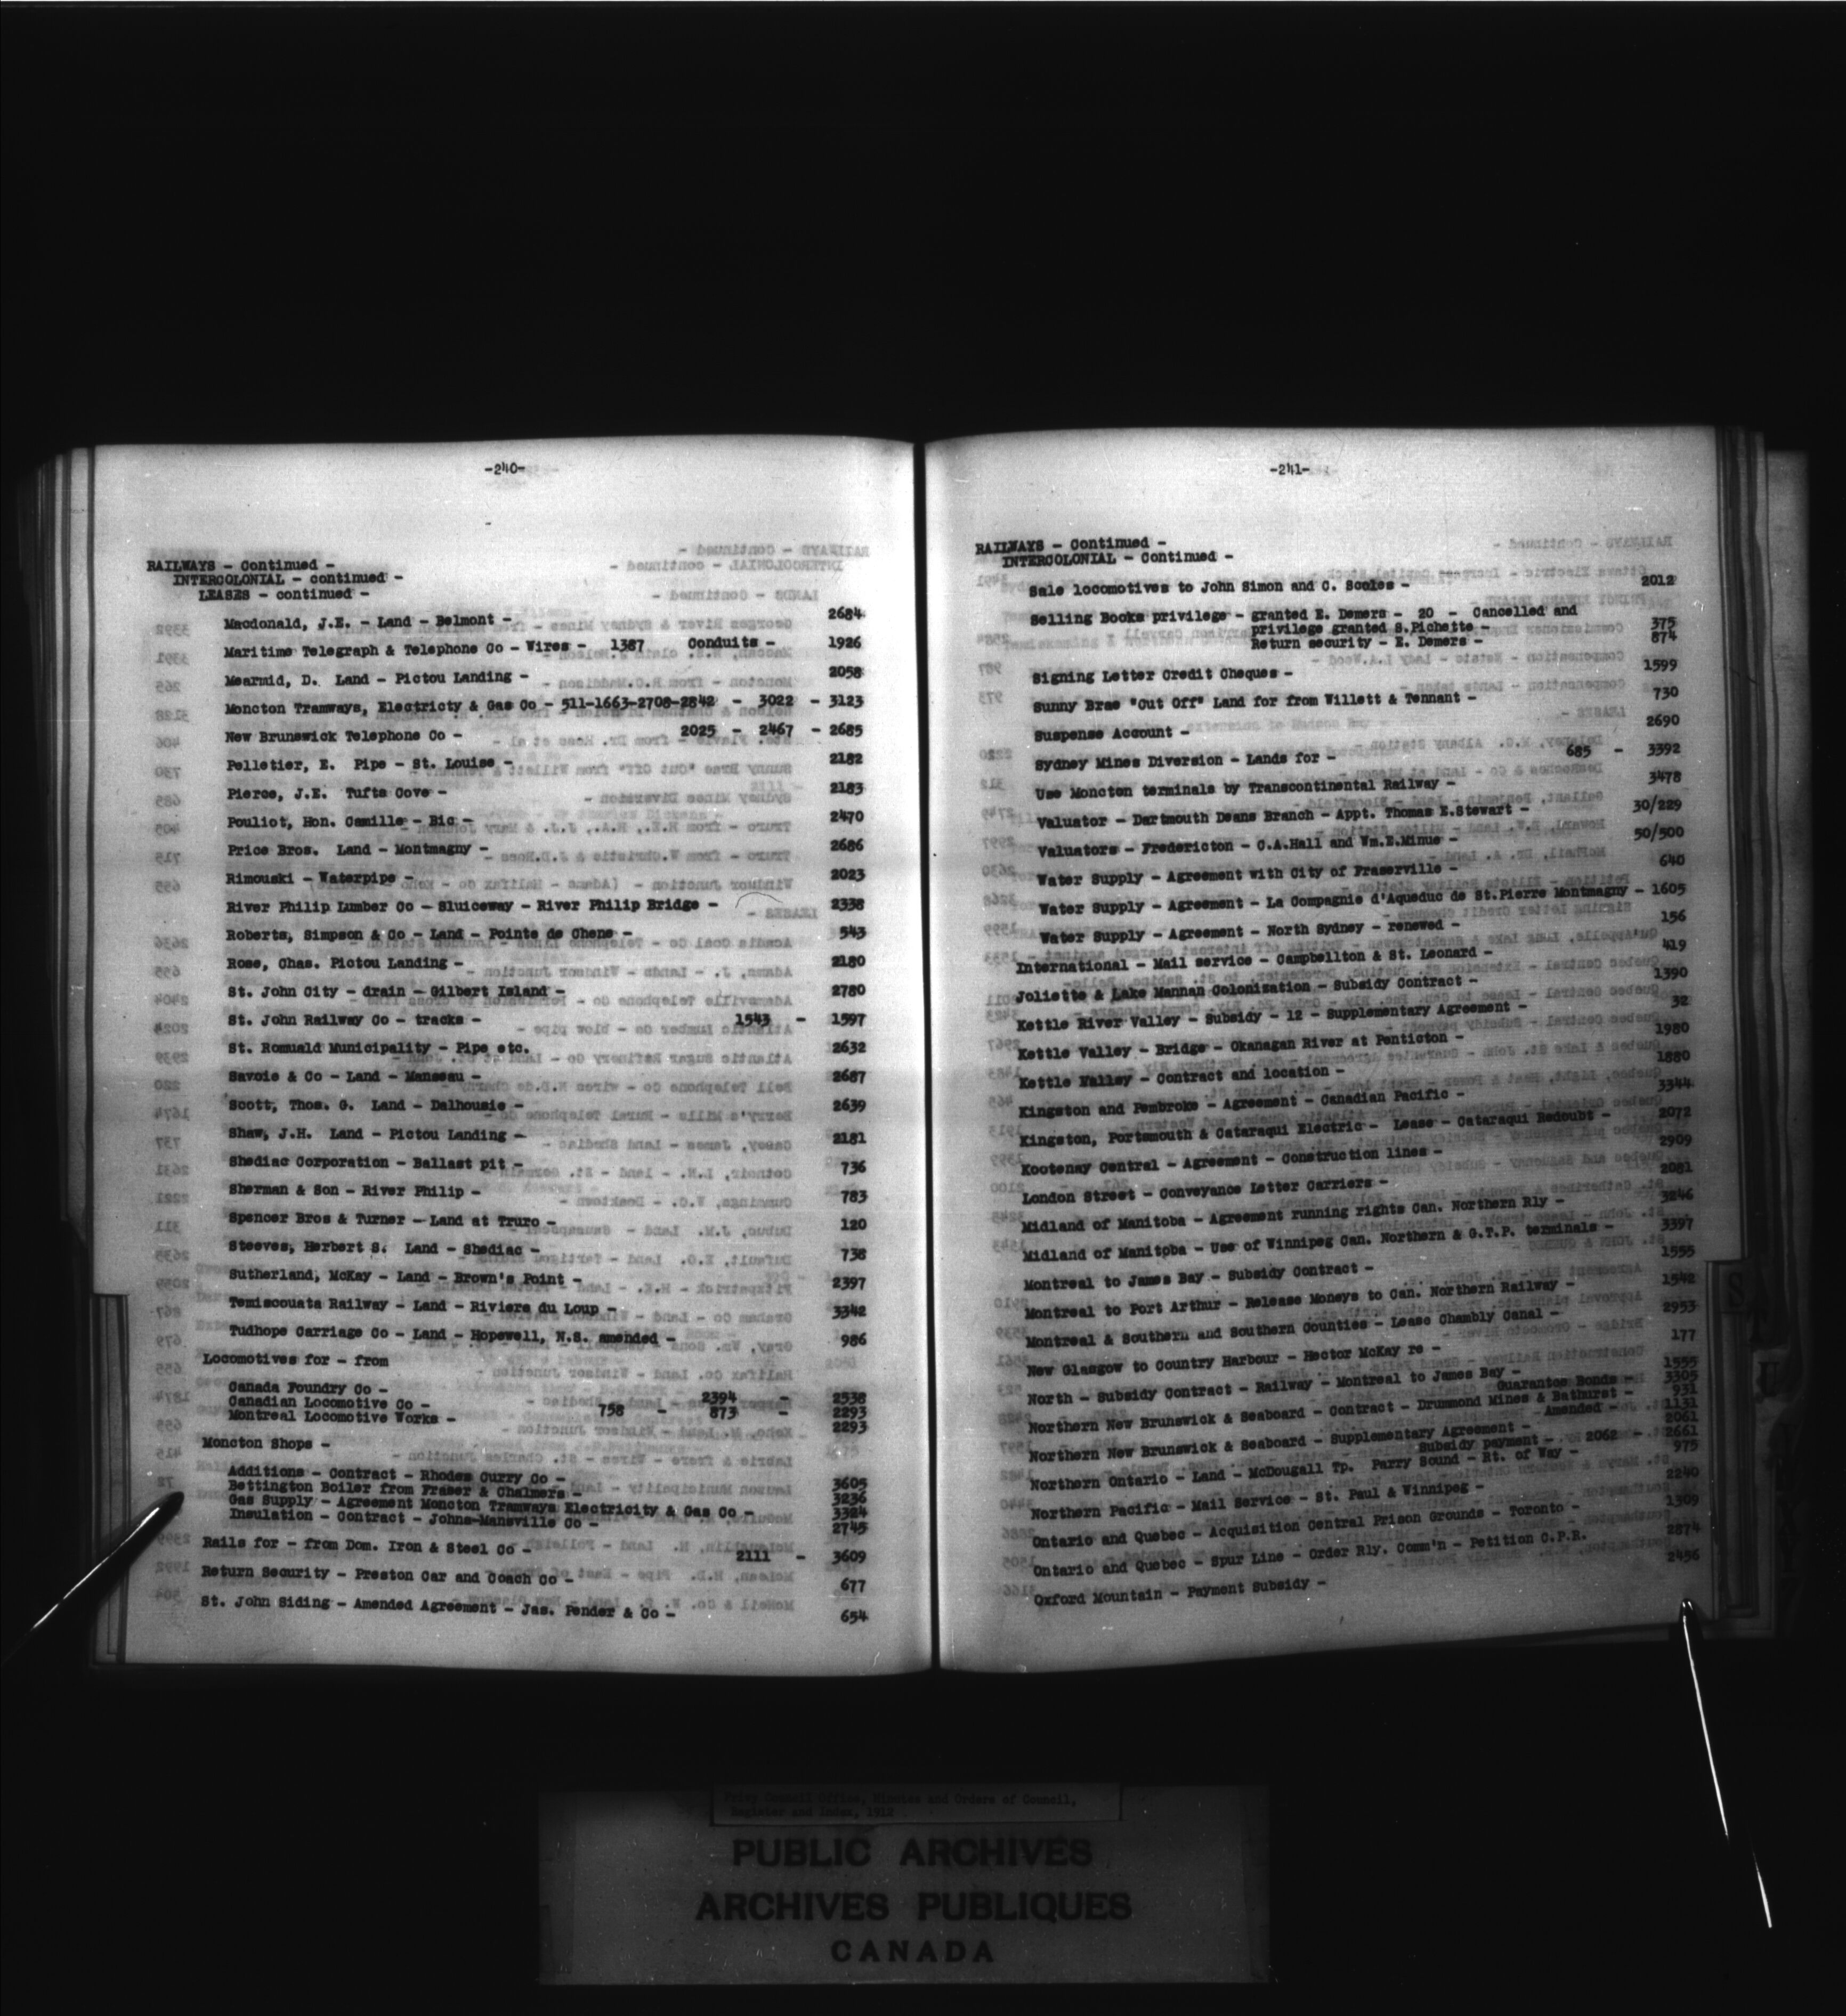 -240-
RAILWAYS - Continued -
INTERCOLONIAL - continued -
LEASES - continued -
Macdonald, J.E. - Land - Belmont - 2684
Maritime Telegraph & Telephone Co - Wires - 1387 Conduits - 1926
Mearmid, D. Land - Pictou Landing - 2058
Moncton Tramways, Electricty & Gas Co - 511-1663-2708-2842 - 3022 - 3123
New Brunswick Telephone Co - 2025 - 2467 - 2685
Pelletier, E. Pipe - St. Louise - 2182
Pierce, J.E. Tufts Cove - 2183
Pouliot, Hon. Camille - Bic - 2470
Price Bros. Land - Montmagny - 2686
Rimouski - Waterpipe - 2023
River Philip Lumber Co - Sluiceway - River Philip Bridge - 2338
Roberts, Simpson & Co - Land - Pointe de Chene - 543
Rose, Chas. Pictou Landing - 2180
St. John City - drain - Gilbert Island - 2780
St. John Railway Co - tracks - 1543 - 1597
St. Romuald Municipality - Pipe etc. 2632
Savoie & Co - Land - Manseau - 2687
Scott, Thos. G. Land - Dalhousie - 2639
Shaw, J.H. Land - Pictou Landing - 2181
Shediac Corporation - Ballast pit - 736
Sherman & Son - River Philip - 783
Spencer Bros & Turner - Land at Truro - 120
Steeves, Herbert S. Land - Shediac - 738
Sutherland, McKay - Land - Brown's Point - 2397
Temiscouata Railway - Land - Riviere du Loup - 3342
Tudhope Carriage Co - Land - Hopewell, N.S. amended - 986
Locomotives for - from
Canada Foundry Co - 2394 - 2538
Canadian Locomotive Co - 758 - 873 - 2293
Montreal Locomotive Works - 2293
Moncton Shops -
Additions - Contract - Rhodes Curry Co - 3605
Bettington Boiler from Fraser & Chalmers - 3236
Gas Supply - Agreement Moncton Tramways Electricity & Gas Co - 3324
Insulation - Contract - Johns-Mansville Co - 2745
Rails for - from Dom. Iron & Steel Co - 2111 - 3609
Return Security - Preston Car and Coach Co - 677
St. John Siding - Amended Agreement - Jas. Pender & Co - 654
-241-
RAILWAYS - Continued -
INTERCOLONIAL - Continued -
Sale locomotives to John Simon and C. Scoles - 2012
Selling Books privilege - granted E. Demers - 20 - Cancelled and
privilege granted S.Pichette - 375
Return security - E. Demers - 874
Signing Letter Credit Cheques - 1599
Sunny Brae "Cut Off" Land for from Willett & Tennant - 730
Suspense Account - 2690
Sydney Mines Diversion - Lands for - 685 - 3392
Use Moncton terminals by Transcontinental Railway - 3478
Valuator - Dartmouth Deans Branch - Appt. Thomas E.Stewart - 30/229
Valuators - Fredericton - C.A.Hall and Wm.E.Minue - 50/500
Water Supply - Agreement with City of Fraserville - 640
Water Supply - Agreement - La Compagnie d'Aqueduc de St.Pierre Montmagny - 1605
Water Supply - Agreement - North Sydney - renewed - 156
International - Mail service - Campbellton & St. Leonard - 419
Joliette & Lake Mannan Colonization - Subsidy Contract - 1390
Kettle River Valley - Subsidy - 12 - Supplementary Agreement - 32
Kettle Valley - Bridge - Okanagan River at Penticton - 1980
Kettle Valley - Contract and location - 1880
Kingston and Pembroke - Agreement - Canadian Pacific - 3344
Kingston, Portsmouth & Cataraqui Electric - Lease - Cataraqui Redoubt - 2072
Kootenay Central - Agreement - Construction lines - 2909
London Street - Conveyance Letter Carriers - 2081
Midland of Manitoba - Agreement running rights Can. Northern Rly - 3246
Midland of Manitoba - Use of Winnipeg Can. Northern & G.T.P. terminals - 3397
Montreal to James Bay - Subsidy Contract - 1555
Montreal to Port Arthur - Release Moneys to Can. Northern Railway - 1542
Montreal & Southern and Southern Counties - Lease Chambly Canal - 2953
New Glasgow to Country Harbour - Hector McKay re - 177
North - Subsidy Contract - Railway - Montreal to James Bay - 1555
Guarantee Bonds - 3305
Northern New Brunswick & Seaboard - Contract - Drummond Mines & Bathurst - 931
Amended - 1131
Northern New Brunswick & Seaboard - Supplementary Agreement - 2061
Subsidy payment - 2062 - 2661
Northern Ontario - Land - McDougall Tp. Parry Sound - Rt. of Way - 975
Northern Pacific - Mail Service - St. Paul & Winnipeg - 2240
Ontario and Quebec - Acquisition Central Prison Grounds - Toronto - 1309
Ontario and Quebec - Spur Line - Order Rly. Comm'n - Petition C.P.R. 2874
Oxford Mountain - Payment Subsidy - 2456
Privy Council Office, Minutes and Orders of Council,
Register and Index, 1912
PUBLIC ARCHIVES
ARCHIVES PUBLIQUES
CANADA